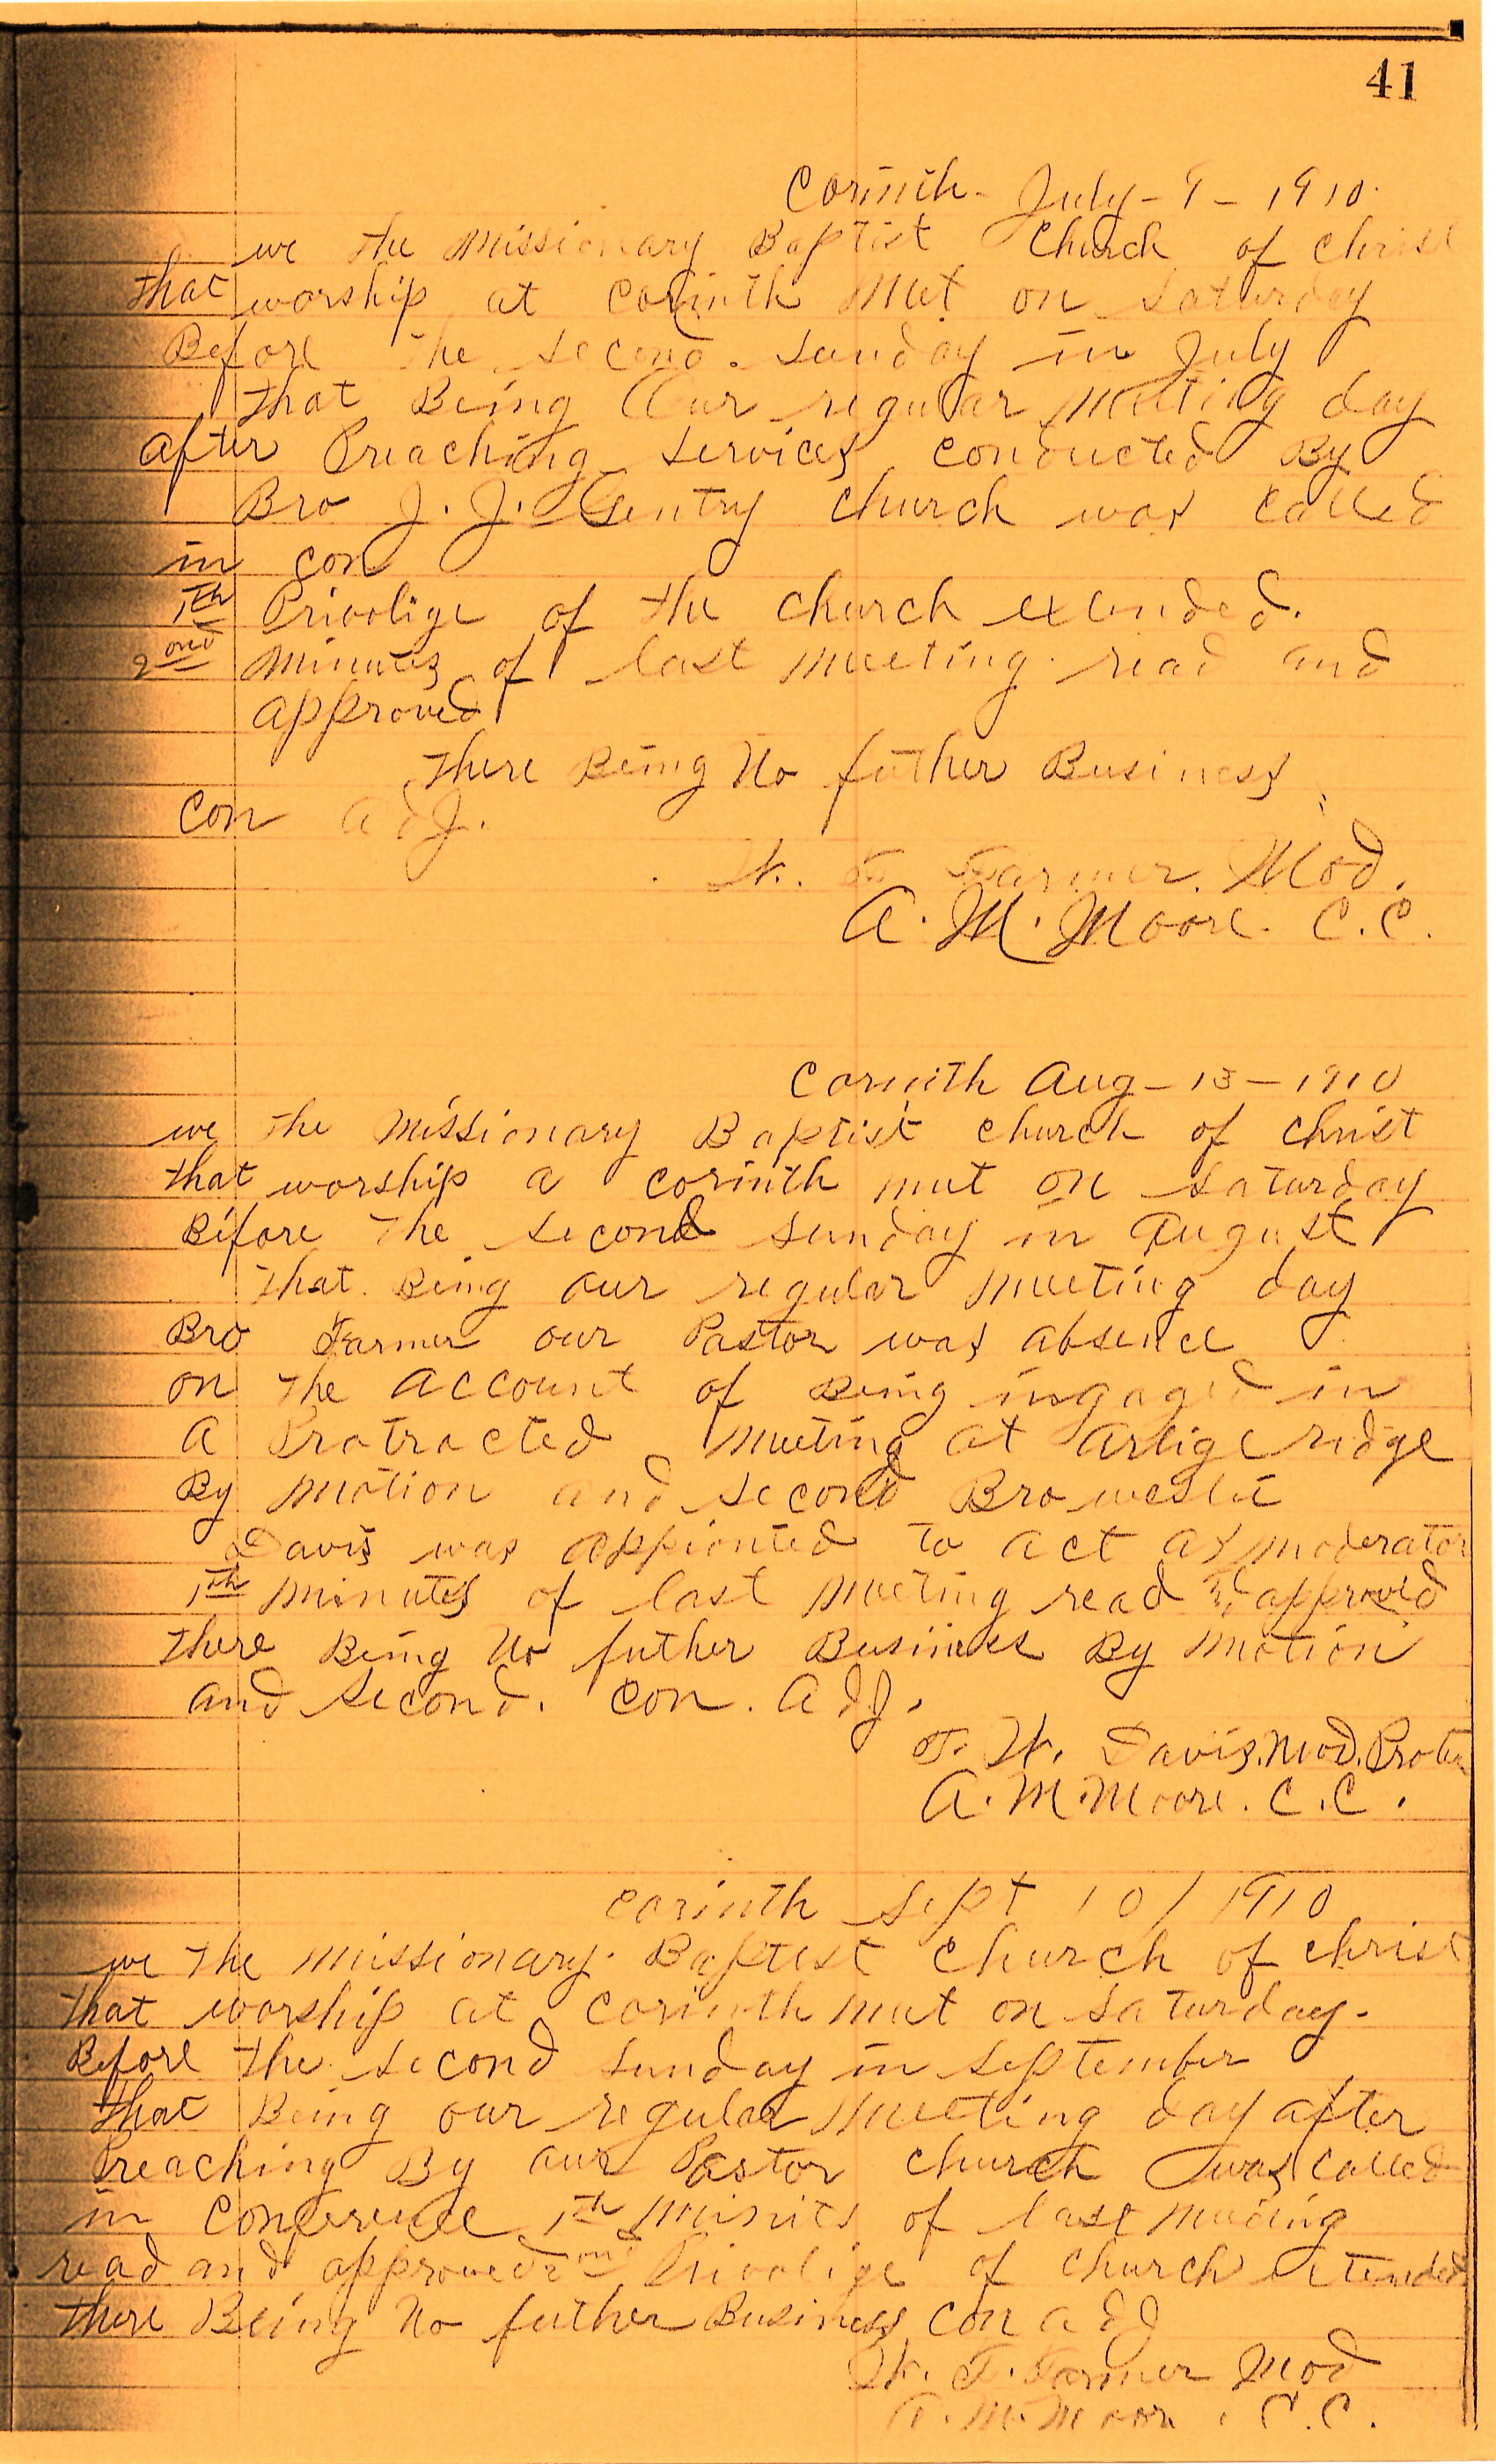 41
Corinth - July - 9 - 1910.
we the Missionary Baptist Church of Christ
that worship at Corinth Met on Saturday
Before the second. Sunday in July
that Being Our regular Meeting day
after Preaching Services conducted By
Bro J. J. Gentry church was called
in con
1th Privolige of the church exended.
2ond Minutes of last meeting. read and
approved
there Being No futher Business
Con adJ.
W. F. Farmer. Mod.
A. M. Moore. C.C.
Corinth Aug - 13 - 1910
we the Missionary Baptist church of christ
that worship a corinth met on Saturday
Before the second sunday in August
that Being our regular meeting day
Bro Farmer our Pastor was absence
on the account of Being ingaged in
a Protracted Meeting at ridge
By motion and second Bro
Davis was appionted to act as moderator
1th minutes of last meeting read & approved
there Being No futher Business By Motion
and second. con. adJ.
W. Davis. Mod. Protem
A. M. Moore. C.C.
Corinth Sept 10/1910
we the missionary. Baptest church of christ
that worship at corinth met on Saturday.
Before the second sunday in September
that Being our regular Meeting day after
Preaching By our Pastor church was called
in Conference 1th Minits of last meeting
read and approved 2ond Privolige of church extended
there Being No futher Business con adJ
W. F. Farmer Mod
A. M. Moore. C.C.